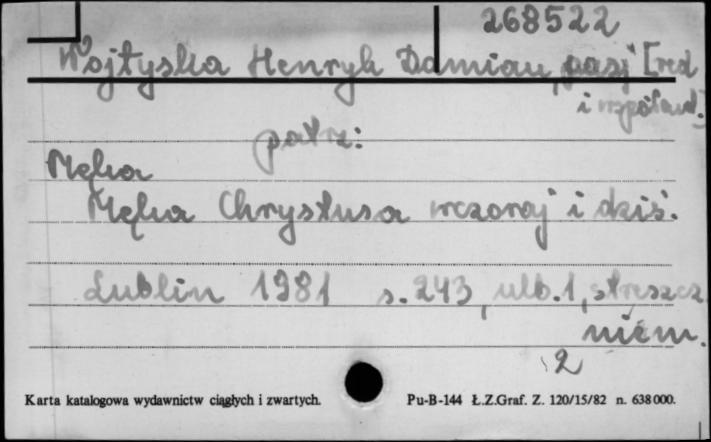 268522
Wojtyska Henryk Damian, pasj [red
i współaut.]
patrz:
Męka
Męka Chrystusa wczoraj i dziś.
Lublin 1981 s. 243, ulb. 1, streszcz.
niem.
2
Karta katalogowa wydawnictw ciągłych i zwartych. Pu-B-144 Ł.Z.Graf. Z. 120/15/82 n. 638000.